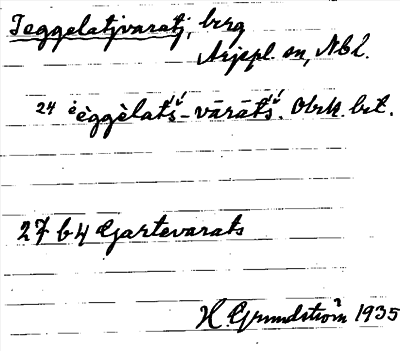 Teggelatjvaratj, berg
Arjepl. sn, Nbl.
24 ėèggėlat́ś-vārāt́ś. Obrk. bet.
27 b 4 Gartevarats
H Grundström 1935